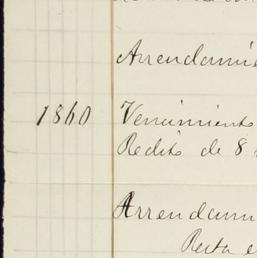 Arrendamie
1860 Vencimiento
Redito de 8
Arrendami
Resta e